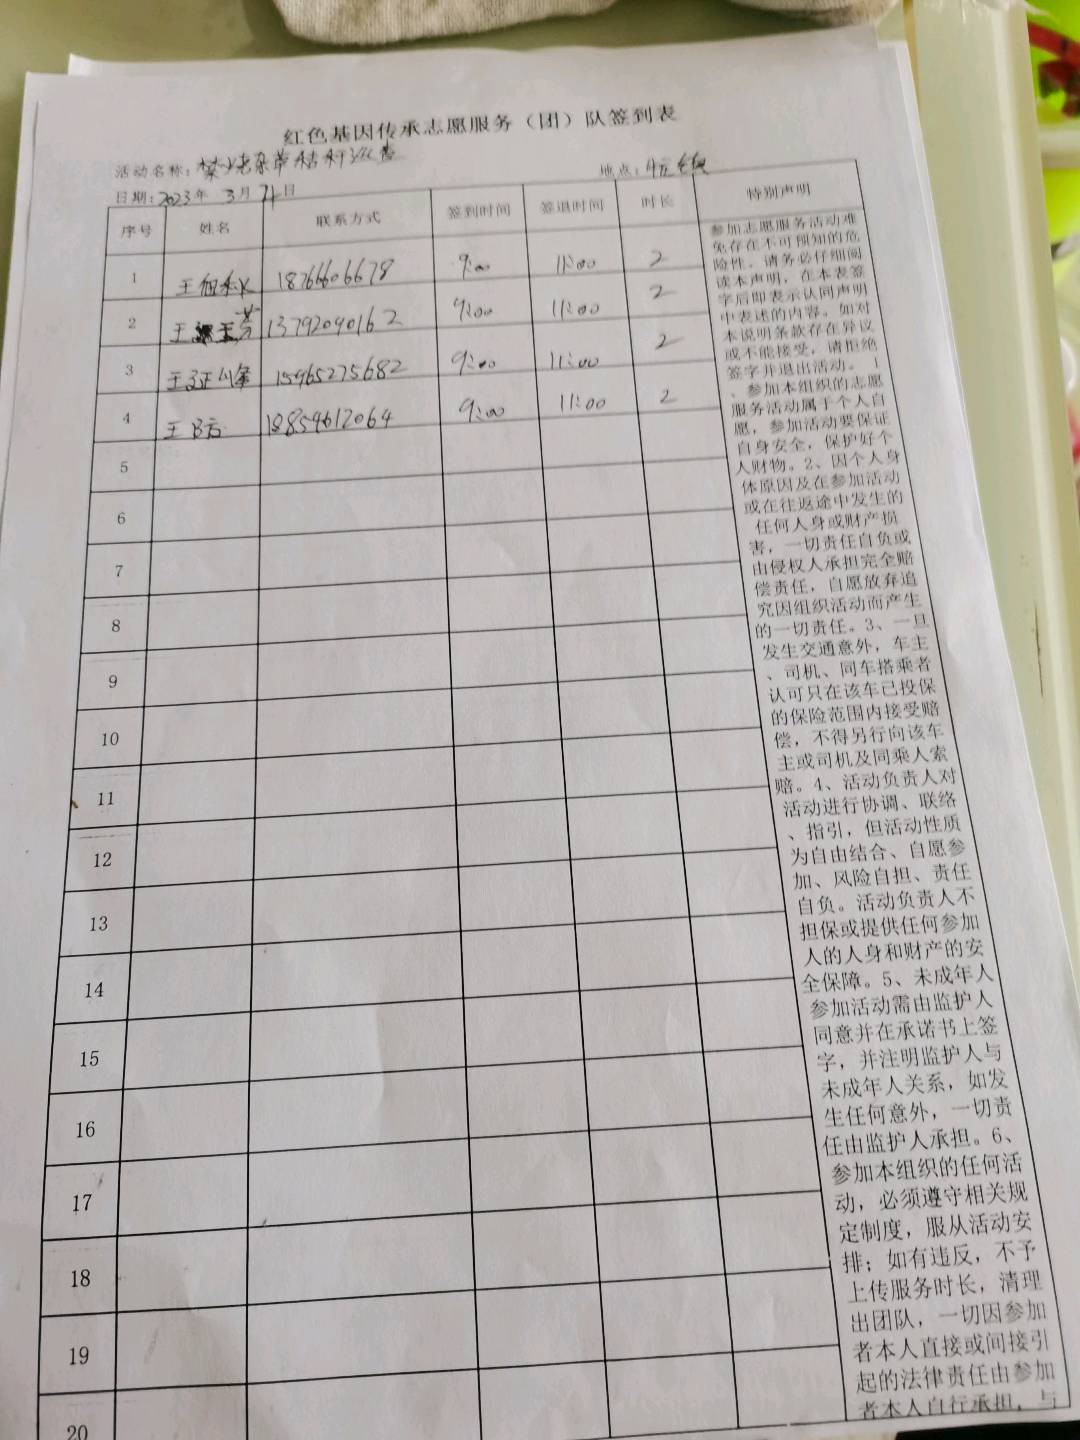 红色基因传承志愿服务（团）队签到表
活动名称：禁烧杂草秸秆巡查
日期：2023年 3月 21日 地点：
序号 姓名 联系方式 签到时间 签退时间 时长 特别声明
1 王 18766606678 9:00 11:00 2
2 王 13792090162 9:00 11:00 2
3 王 15965275682 9:00 11:00 2
4 王 18854612064 9:00 11:00 2
5
6
7
8
9
10
11
12
13
14
15
16
17
18
19
20
参加志愿服务活动难
免存在不可预知的危
险性。请务必仔细阅
读本声明，在本表签
字后即表示认同声明
中表述的内容。如对
本说明条款存在异议
或不能接受，请拒绝
签字并退出活动。 1
、参加本组织的志愿
服务活动属于个人自
愿，参加活动要保证
自身安全，保护好个
人财物。2、因个人身
体原因及在参加活动
或在往返途中发生的
任何人身或财产损
害，一切责任自负或
由侵权人承担完全赔
偿责任，自愿放弃追
究因组织活动而产生
的一切责任。3、一旦
发生交通意外，车主
、司机、同车搭乘者
认可只在该车已投保
的保险范围内接受赔
偿，不得另行向该车
主或司机及同乘人索
赔。4、活动负责人对
活动进行协调、联络
、指引，但活动性质
为自由结合、自愿参
加、风险自担、责任
自负。活动负责人不
担保或提供任何参加
人的人身和财产的安
全保障。5、未成年人
参加活动需由监护人
同意并在承诺书上签
字，并注明监护人与
未成年人关系，如发
生任何意外，一切责
任由监护人承担。6、
参加本组织的任何活
动，必须遵守相关规
定制度，服从活动安
排；如有违反，不予
上传服务时长，清理
出团队，一切因参加
者本人直接或间接引
起的法律责任由参加
者本人自行承担，与